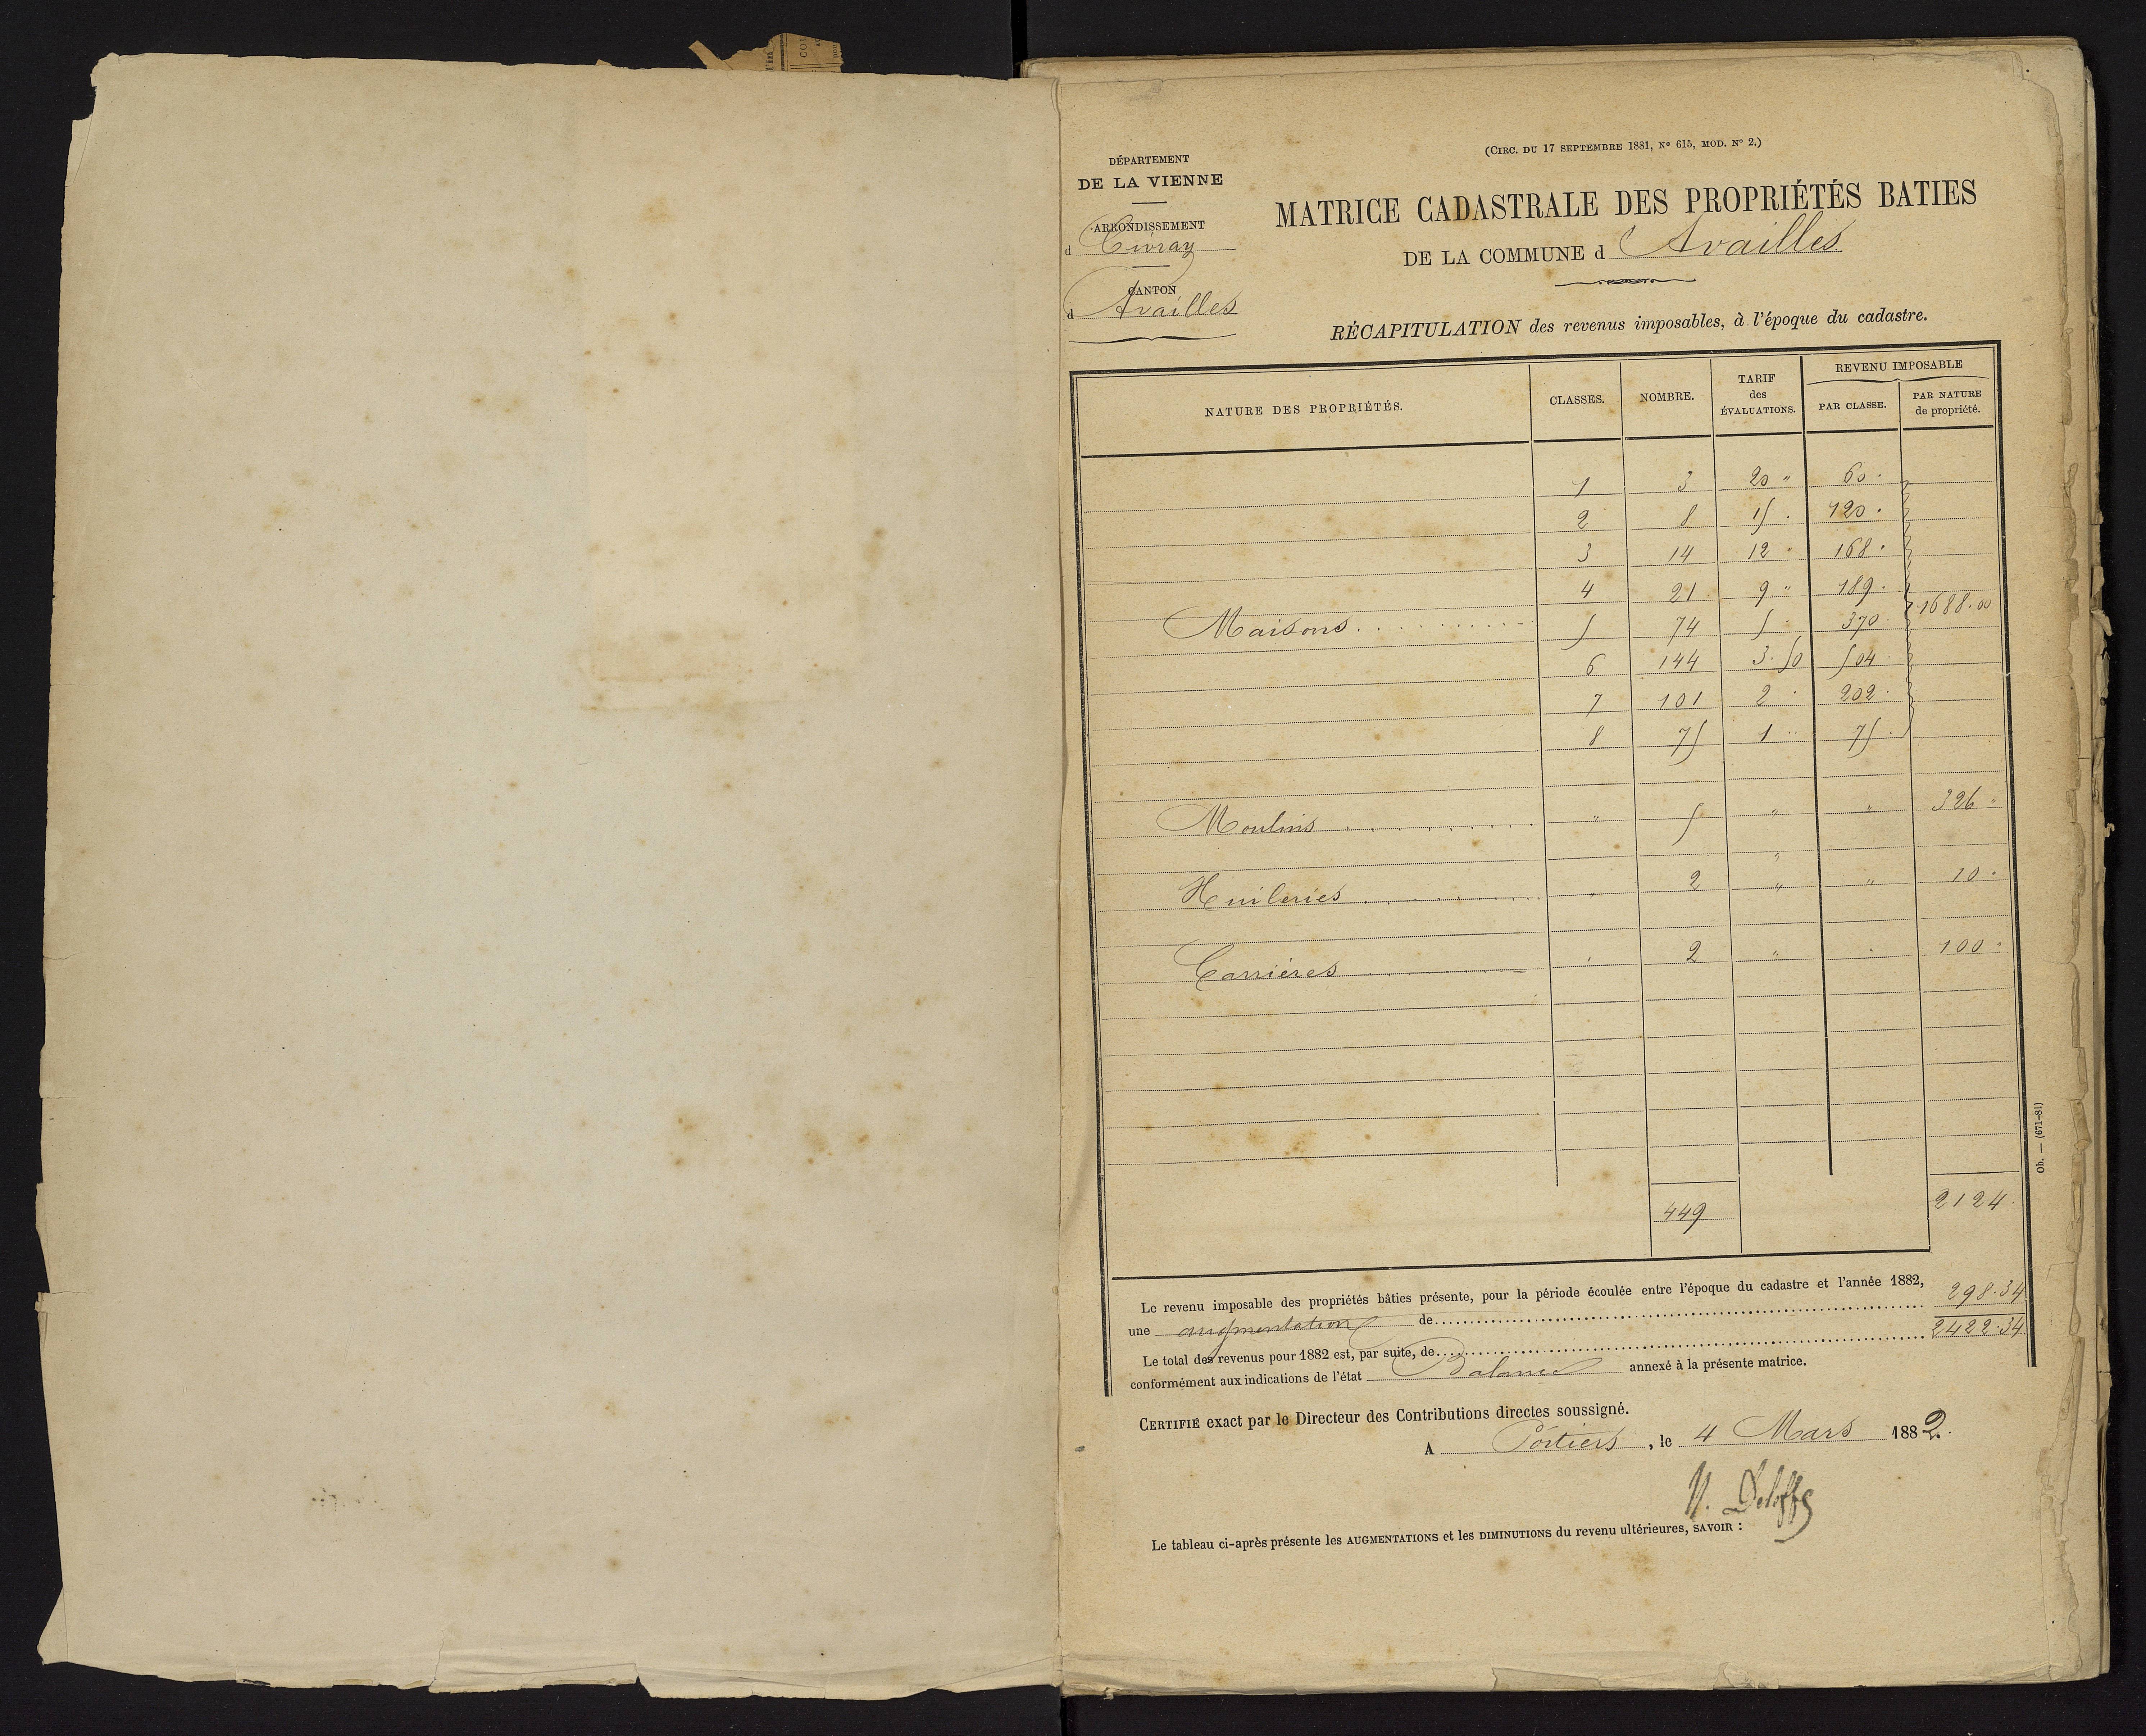 (CIRC. DU 17 SEPTEMBRE 1881, N° 615, MOD. N° 2.)
DÉPARTEMENT
DE LA VIENNE
ARRONDISSEMENT
d Civray
CANTON
d Availles
MATRICE CADASTRALE DES PROPRIÉTÉS BATIES
DE LA COMMUNE d Availles
RÉCAPITULATION des revenus imposables, à l'époque du cadastre.
NATURE DES PROPRIÉTÉS. CLASSES. NOMBRE. TARIF des ÉVALUATIONS. REVENU IMPOSABLE PAR CLASSE. PAR NATURE de propriété.
1 3 20 " 60 .
2 8 15 . 120 .
3 14 12 . 168 .
4 21 9 " 189 .
Maisons 5 74 5 " 370 . 1688.00
6 144 3.50 504 .
7 101 2 . 202 .
8 75 1 " 75 .
Moulins " 5 " " 326 "
"
Huileries " 2 " " 10 .
Carrières . 2 " . 100 "
449 2124 .
Le revenu imposable des propriétés bâties présente, pour la période écoulée entre l'époque du cadastre et l'année 1882,
une augmentation de 298.34
Le total des revenus pour 1882 est, par suite, de 2422.34
conformément aux indications de l'état Balance annexé à la présente matrice.
CERTIFIÉ exact par le Directeur des Contributions directes soussigné.
A Poitiers , le 4 Mars 1882.
Le tableau ci-après présente les AUGMENTATIONS et les DIMINUTIONS du revenu ultérieures, SAVOIR :
Ob. — (671-81)